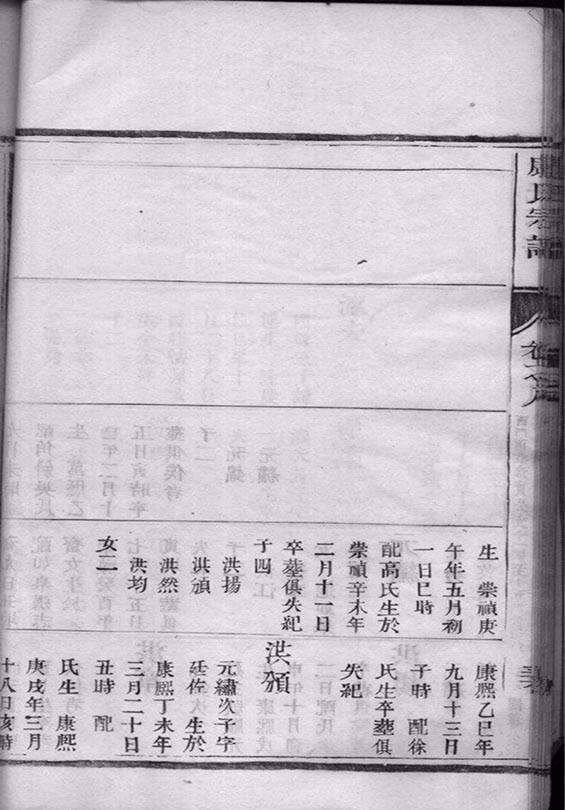 氏宗譜
生 崇禎庚
午年五月初
一日巳時
配高氏生於
崇禎辛未年
二月十一日
卒塟俱失紀
子四
洪揚
洪頒
洪然
洪均
女二
康熙乙巳年
九月十三日
子時 配徐
氏生卒塟俱
失紀
洪頒
元繡次子字
廷佐生於
康熙丁未年
三月二十日
丑時 配
氏生 康熙
庚戌年三月
十八日亥時